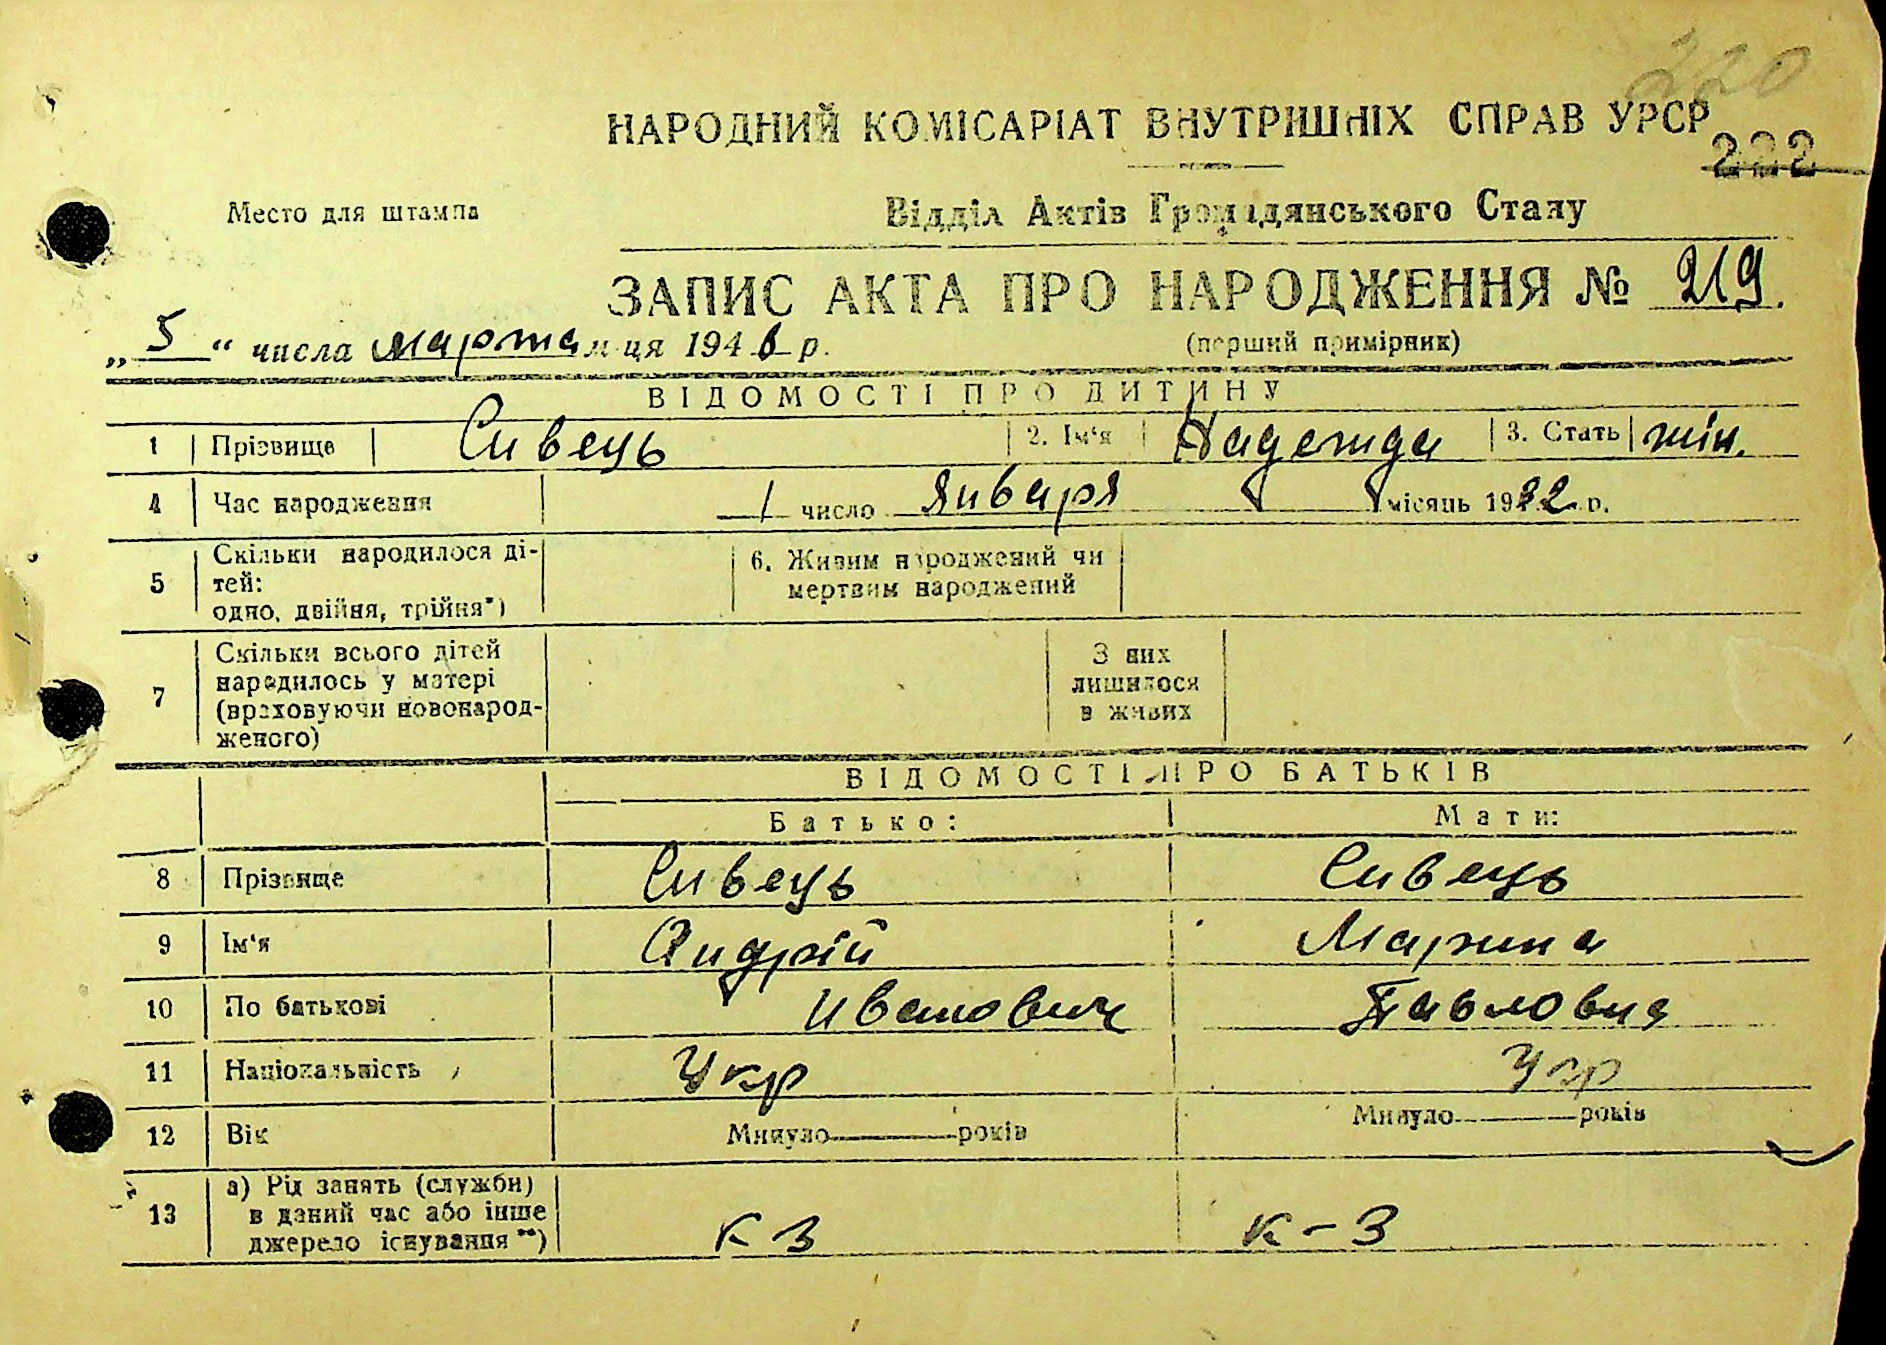 220
НАРОДНИЙ КОМІСАРІАТ ВНУТРІШНІХ СПРАВ УРСР
222
Место для штампа
Відділ Актів Громадянського Стану
ЗАПИС АКТА ПРО НАРОДЖЕННЯ № 219.
„5“ числа марта м-ця 1946 р.
(перший примірник)
ВІДОМОСТІ ПРО ДИТИНУ
1 Прізвище Сивець 2. Ім'я Надежда 3. Стать жін.
4 Час народження 1 число Января місяць 1932 р.
5 Скільки народилося ді-
тей:
одно, двійня, трійня*)
6. Живим народжений чи
мертвим народжений
7 Скільки всього дітей
народилось у матері
(враховуючи новонарод-
женого)
З них
лишилося
в живих
ВІДОМОСТІ ПРО БАТЬКІВ
Батько: Мати:
8 Прізвище Сивець Сивець
9 Ім'я Андрій Марина
10 По батькові Иванович Павловна
11 Національність Укр Укр
12 Вік Минуло років Минуло років
13 а) Рід занять (служби)
в даний час або інше
джерело існування**)
К З К-З